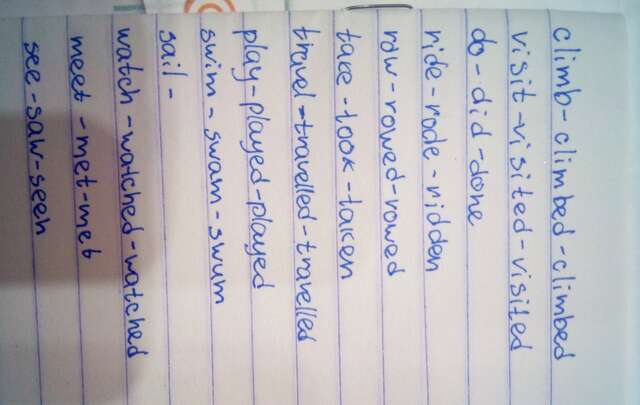 climb-climbed-climbed
visit-visited-visited
do-did-done
ride-rode-ridden
row-rowed-rowed
take-took-taken
travel-travelled-travelled
play-played-played
swim-swam-swum
sail-
watch-watched-watched
meet-met-met
see-saw-seen